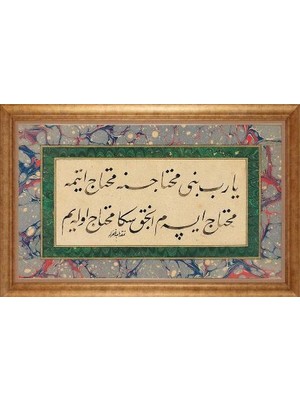 يارب بنى محتاجنه محتاج ايتمه
محتاج ايدرسم انجق سكا محتاج اوله‌يم